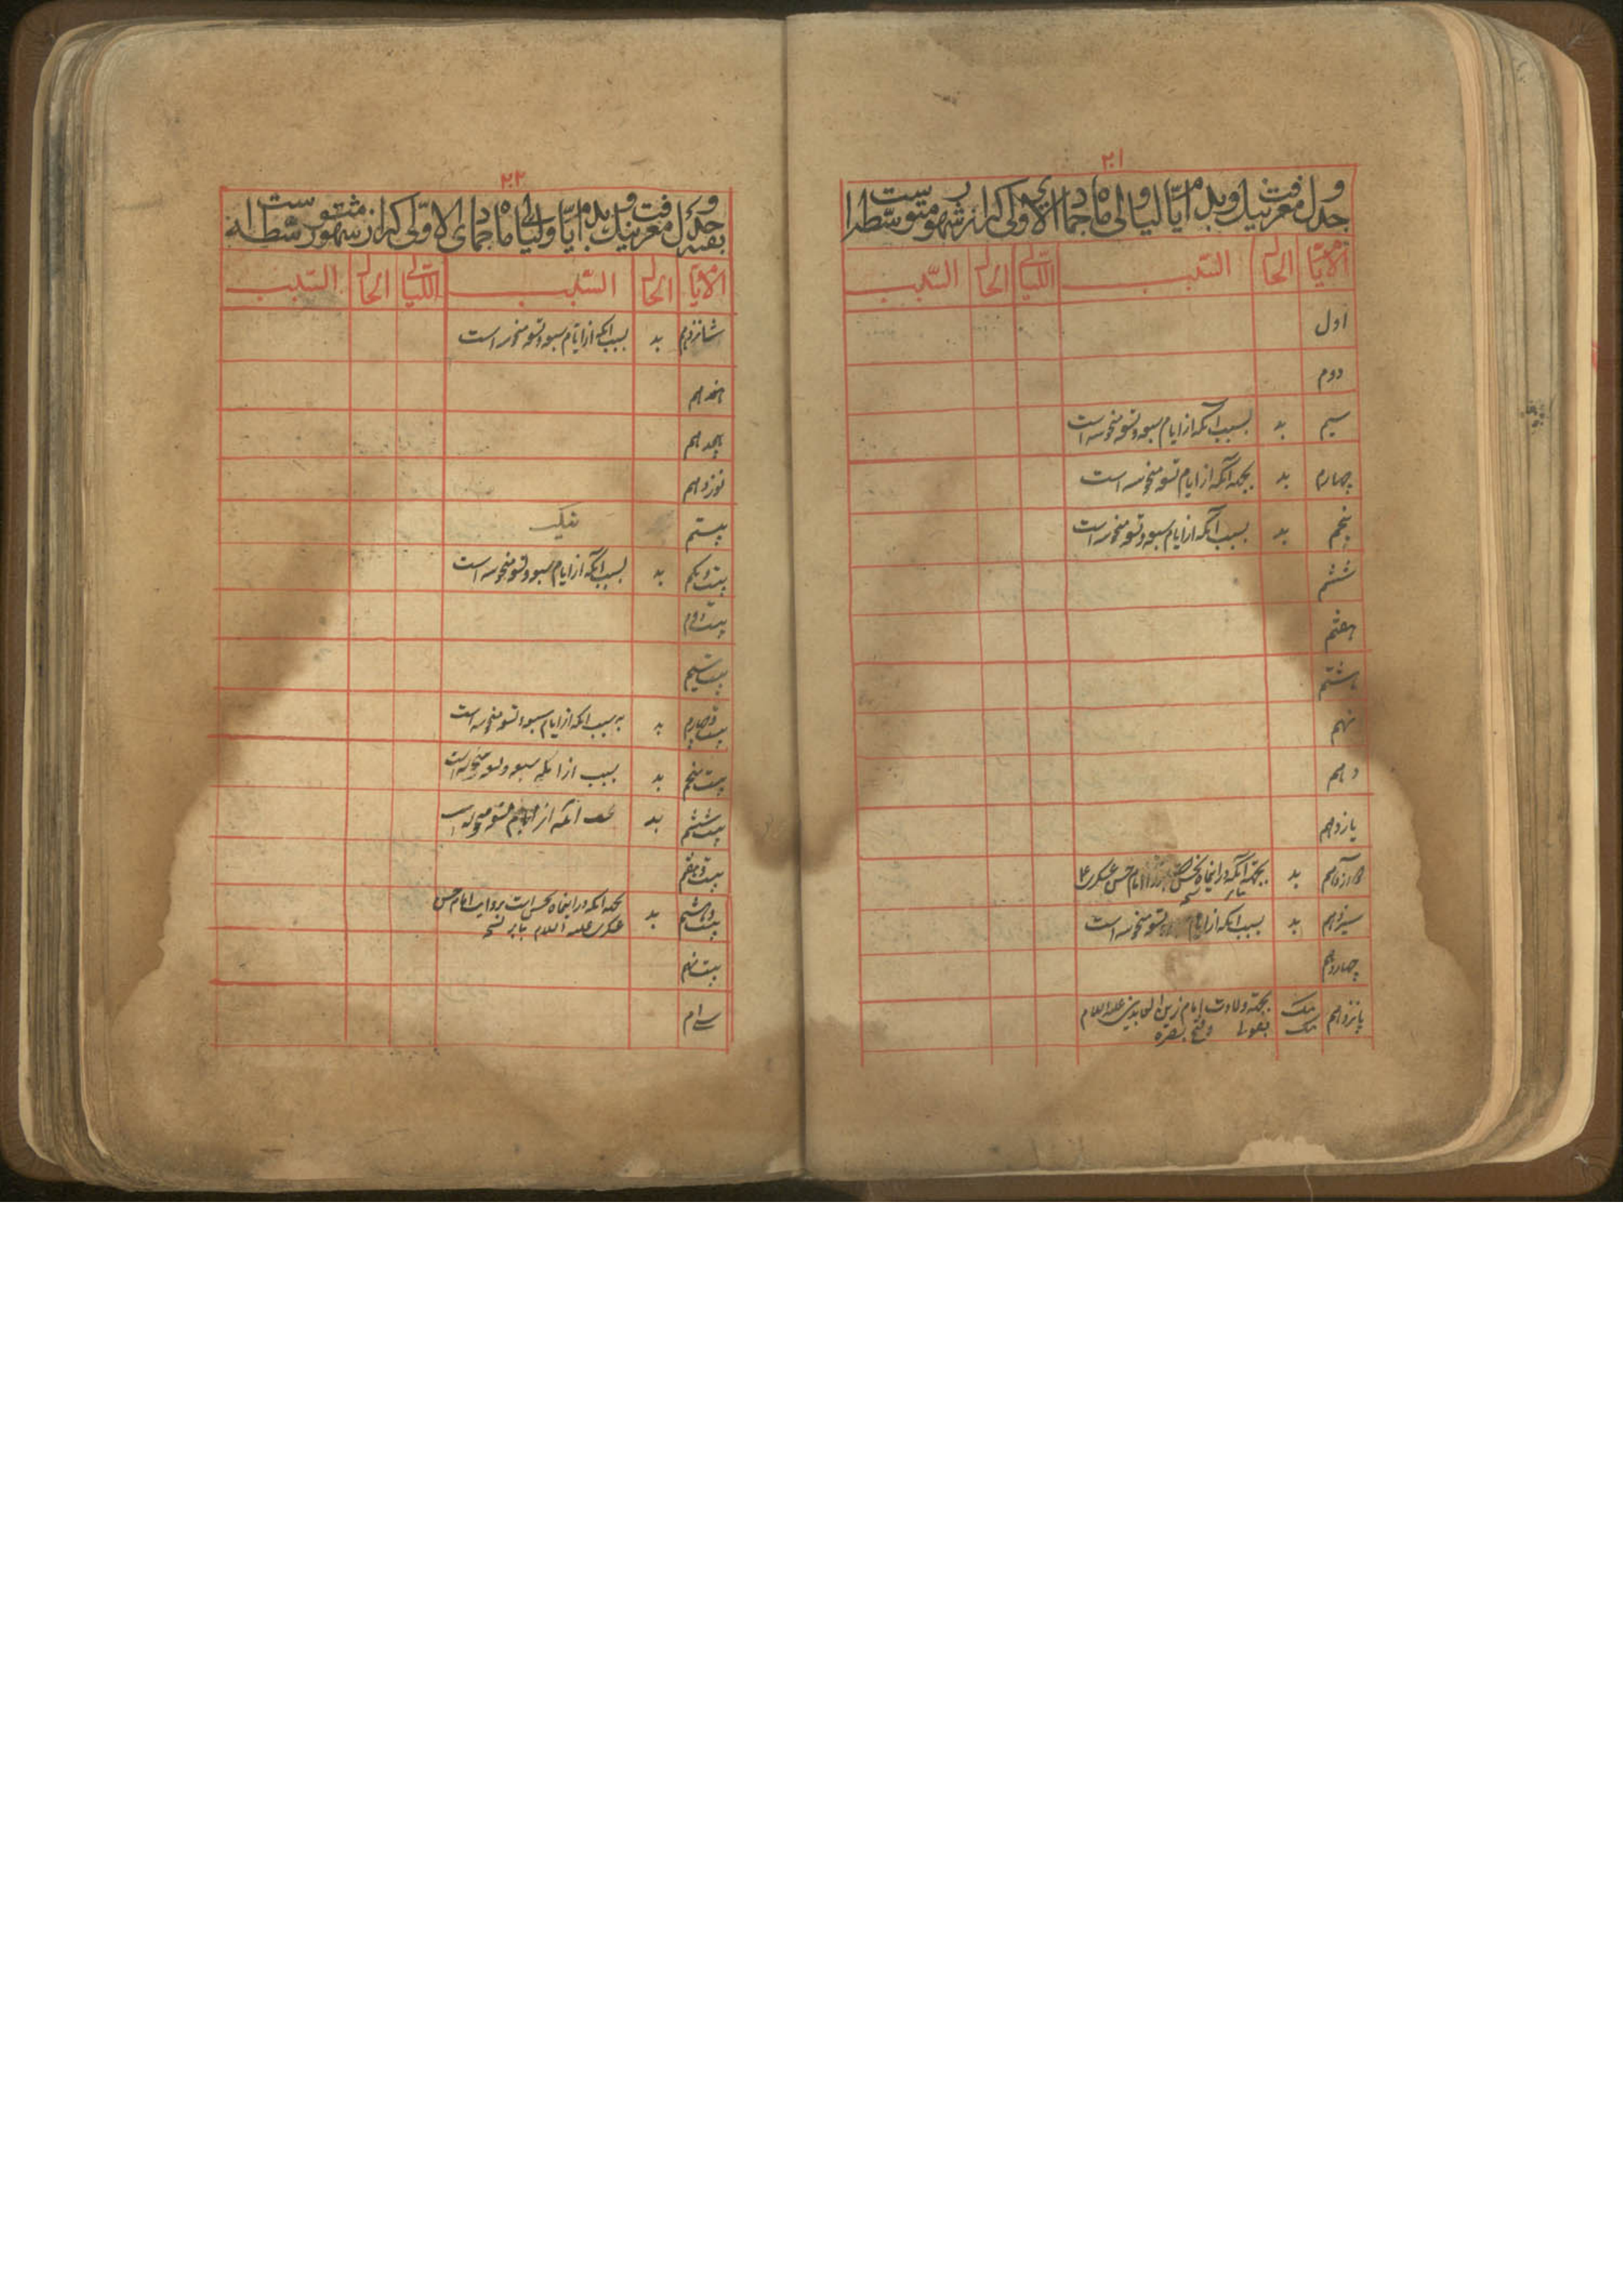 ۲۰۱
جدول معرفت نیک و بد ایام و لیالی ماه جمادی الاولی که از شهور متوسط است
الایام الحال السبب اللیالی الحال السبب
اول
دوم
سیم بد بسبب آنکه از ایام سبعه و تسعه منحوسه است
چهارم بد بجهة آنکه از ایام تسعه منحوسه است
پنجم بد بسبب آنکه از ایام سبعه و تسعه منحوسه است
ششم
هفتم
هشتم
نهم
دهم
یازدهم
دوازدهم بد بجهة آنکه در اینماه نحس امام حسن عسکری ع
سیزدهم بد بسبب آنکه از ایام تسعه منحوسه است
چهاردهم
پانزدهم نیک بجهة ولادت امام زین العابدین علیه السلام
نیک بقولی و فتح بصره
۲۰۲
بقیه جدول معرفت نیک و بد ایام و لیالی ماه جمادی الاولی که از شهور متوسطه است
الایام الحال السبب اللیالی الحال السبب
شانزدهم بد بسبب آنکه از ایام سبعه و تسعه منحوسه است
هفدهم
هیجدهم
نوزدهم
بیستم نیک
بیست و یکم بد بسبب آنکه از ایام سبعه و تسعه منحوسه است
بیست و دوم
بیست و سیم
بیست و چهارم بد به سبب آنکه از ایام سبعه و تسعه منحوسه است
بیست و پنجم بد بسبب از آنکه سبعه و تسعه منحوسه است
بیست و ششم بد آنکه از ایام تسعه منحوسه است
بیست و هفتم
بیست و هشتم بد بجهة آنکه در اینماه نحس است بروایت امام حسن
عسکری علیه السلام
بیست و نهم
سی ام